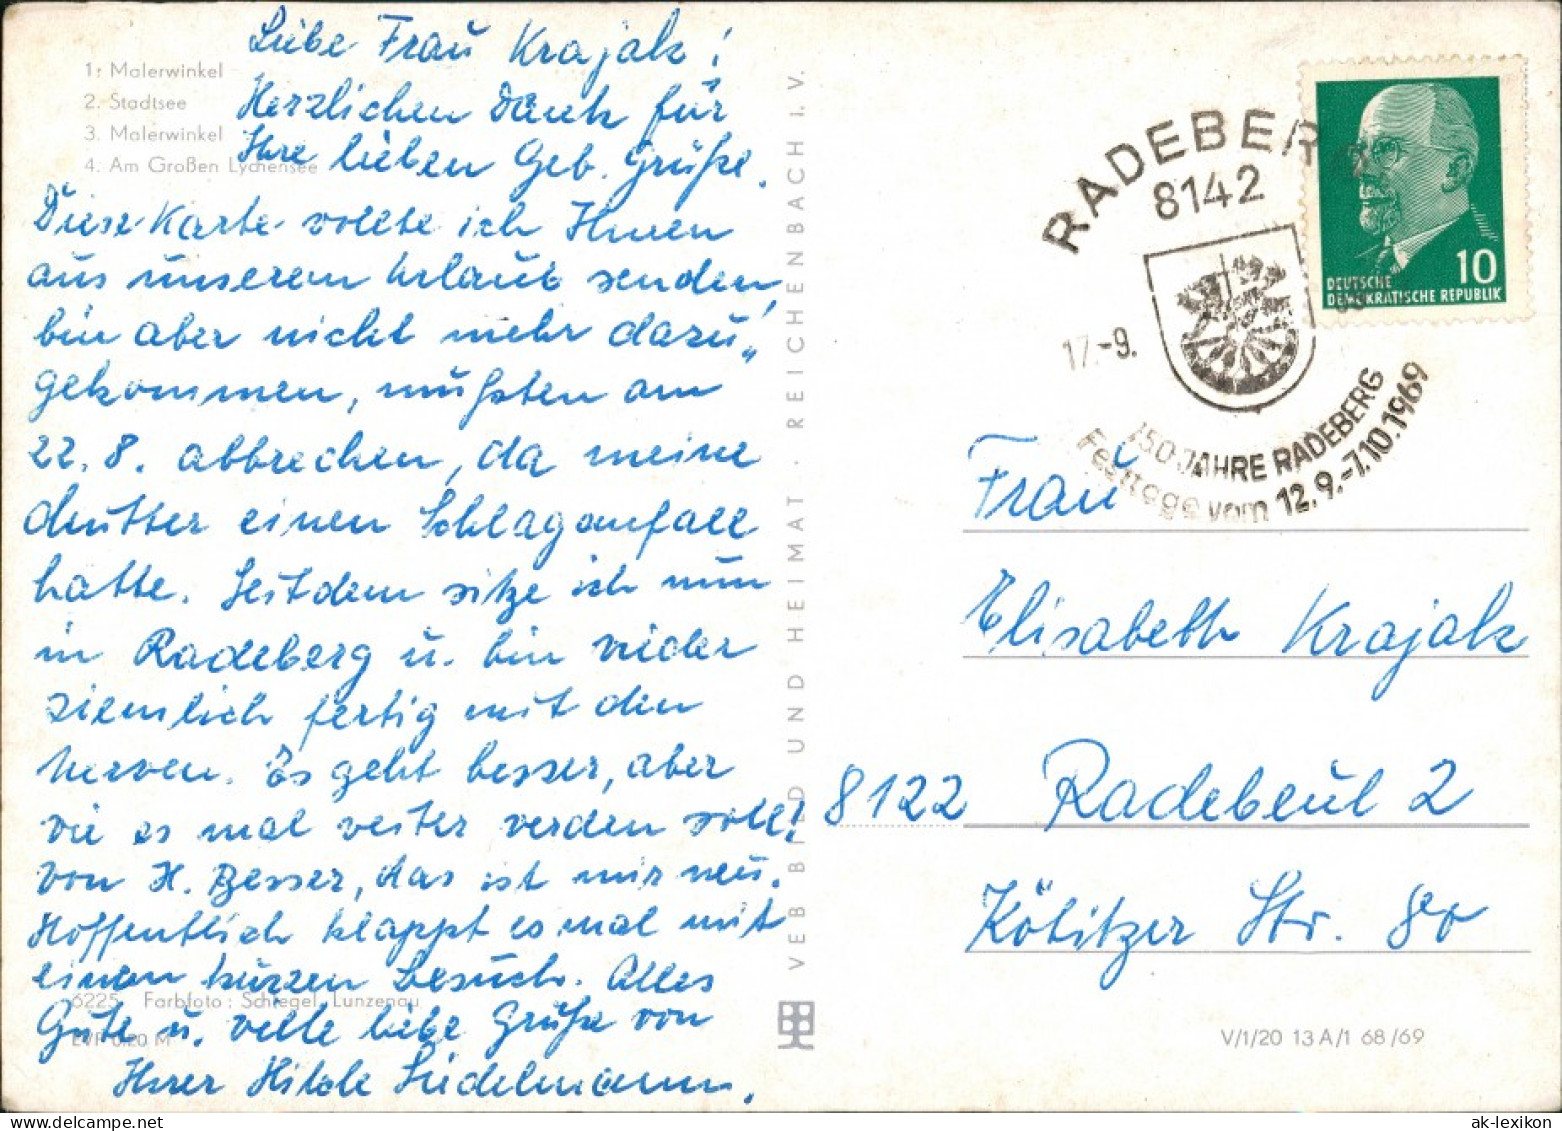 1. Malerwinkel
2. Stadtsee
3. Malerwinkel
4. Am Großen Lychensee
Liebe Frau Krajak!
Herzlichen Dank für
Ihre lieben Geb. Grüße.
Diese Karte wollte ich Ihnen
aus unserem Urlaub senden,
bin aber nicht mehr dazu
gekommen, mußten am
22. 8. abbrechen, da meine
Mutter einen Schlaganfall
hatte. Seitdem sitze ich nun
in Radeberg u. bin wieder
ziemlich fertig mit den
Nerven. Es geht besser, aber
wie es mal weiter werden soll!
Von H. Besser, das ist mir neu.
Hoffentlich klappt es mal mit
einem kurzen Besuch. Alles
Gute u. viele liebe Grüße von
Ihrer Hilde
6225 Farbfoto: Schlegel, Lunzenau
EVP 0,20 M
VEB BILD UND HEIMAT · REICHENBACH I. V.
RADEBERG
8142
17.-9.
750 JAHRE RADEBERG
Festtage vom 12.9.-7.10.1969
10
DEUTSCHE
DEMOKRATISCHE REPUBLIK
Frau
Elisabeth Krajak
8122 Radebeul 2
Kötitzer Str. 80
V/1/20 13 A/1 68/69
ak-lexikon